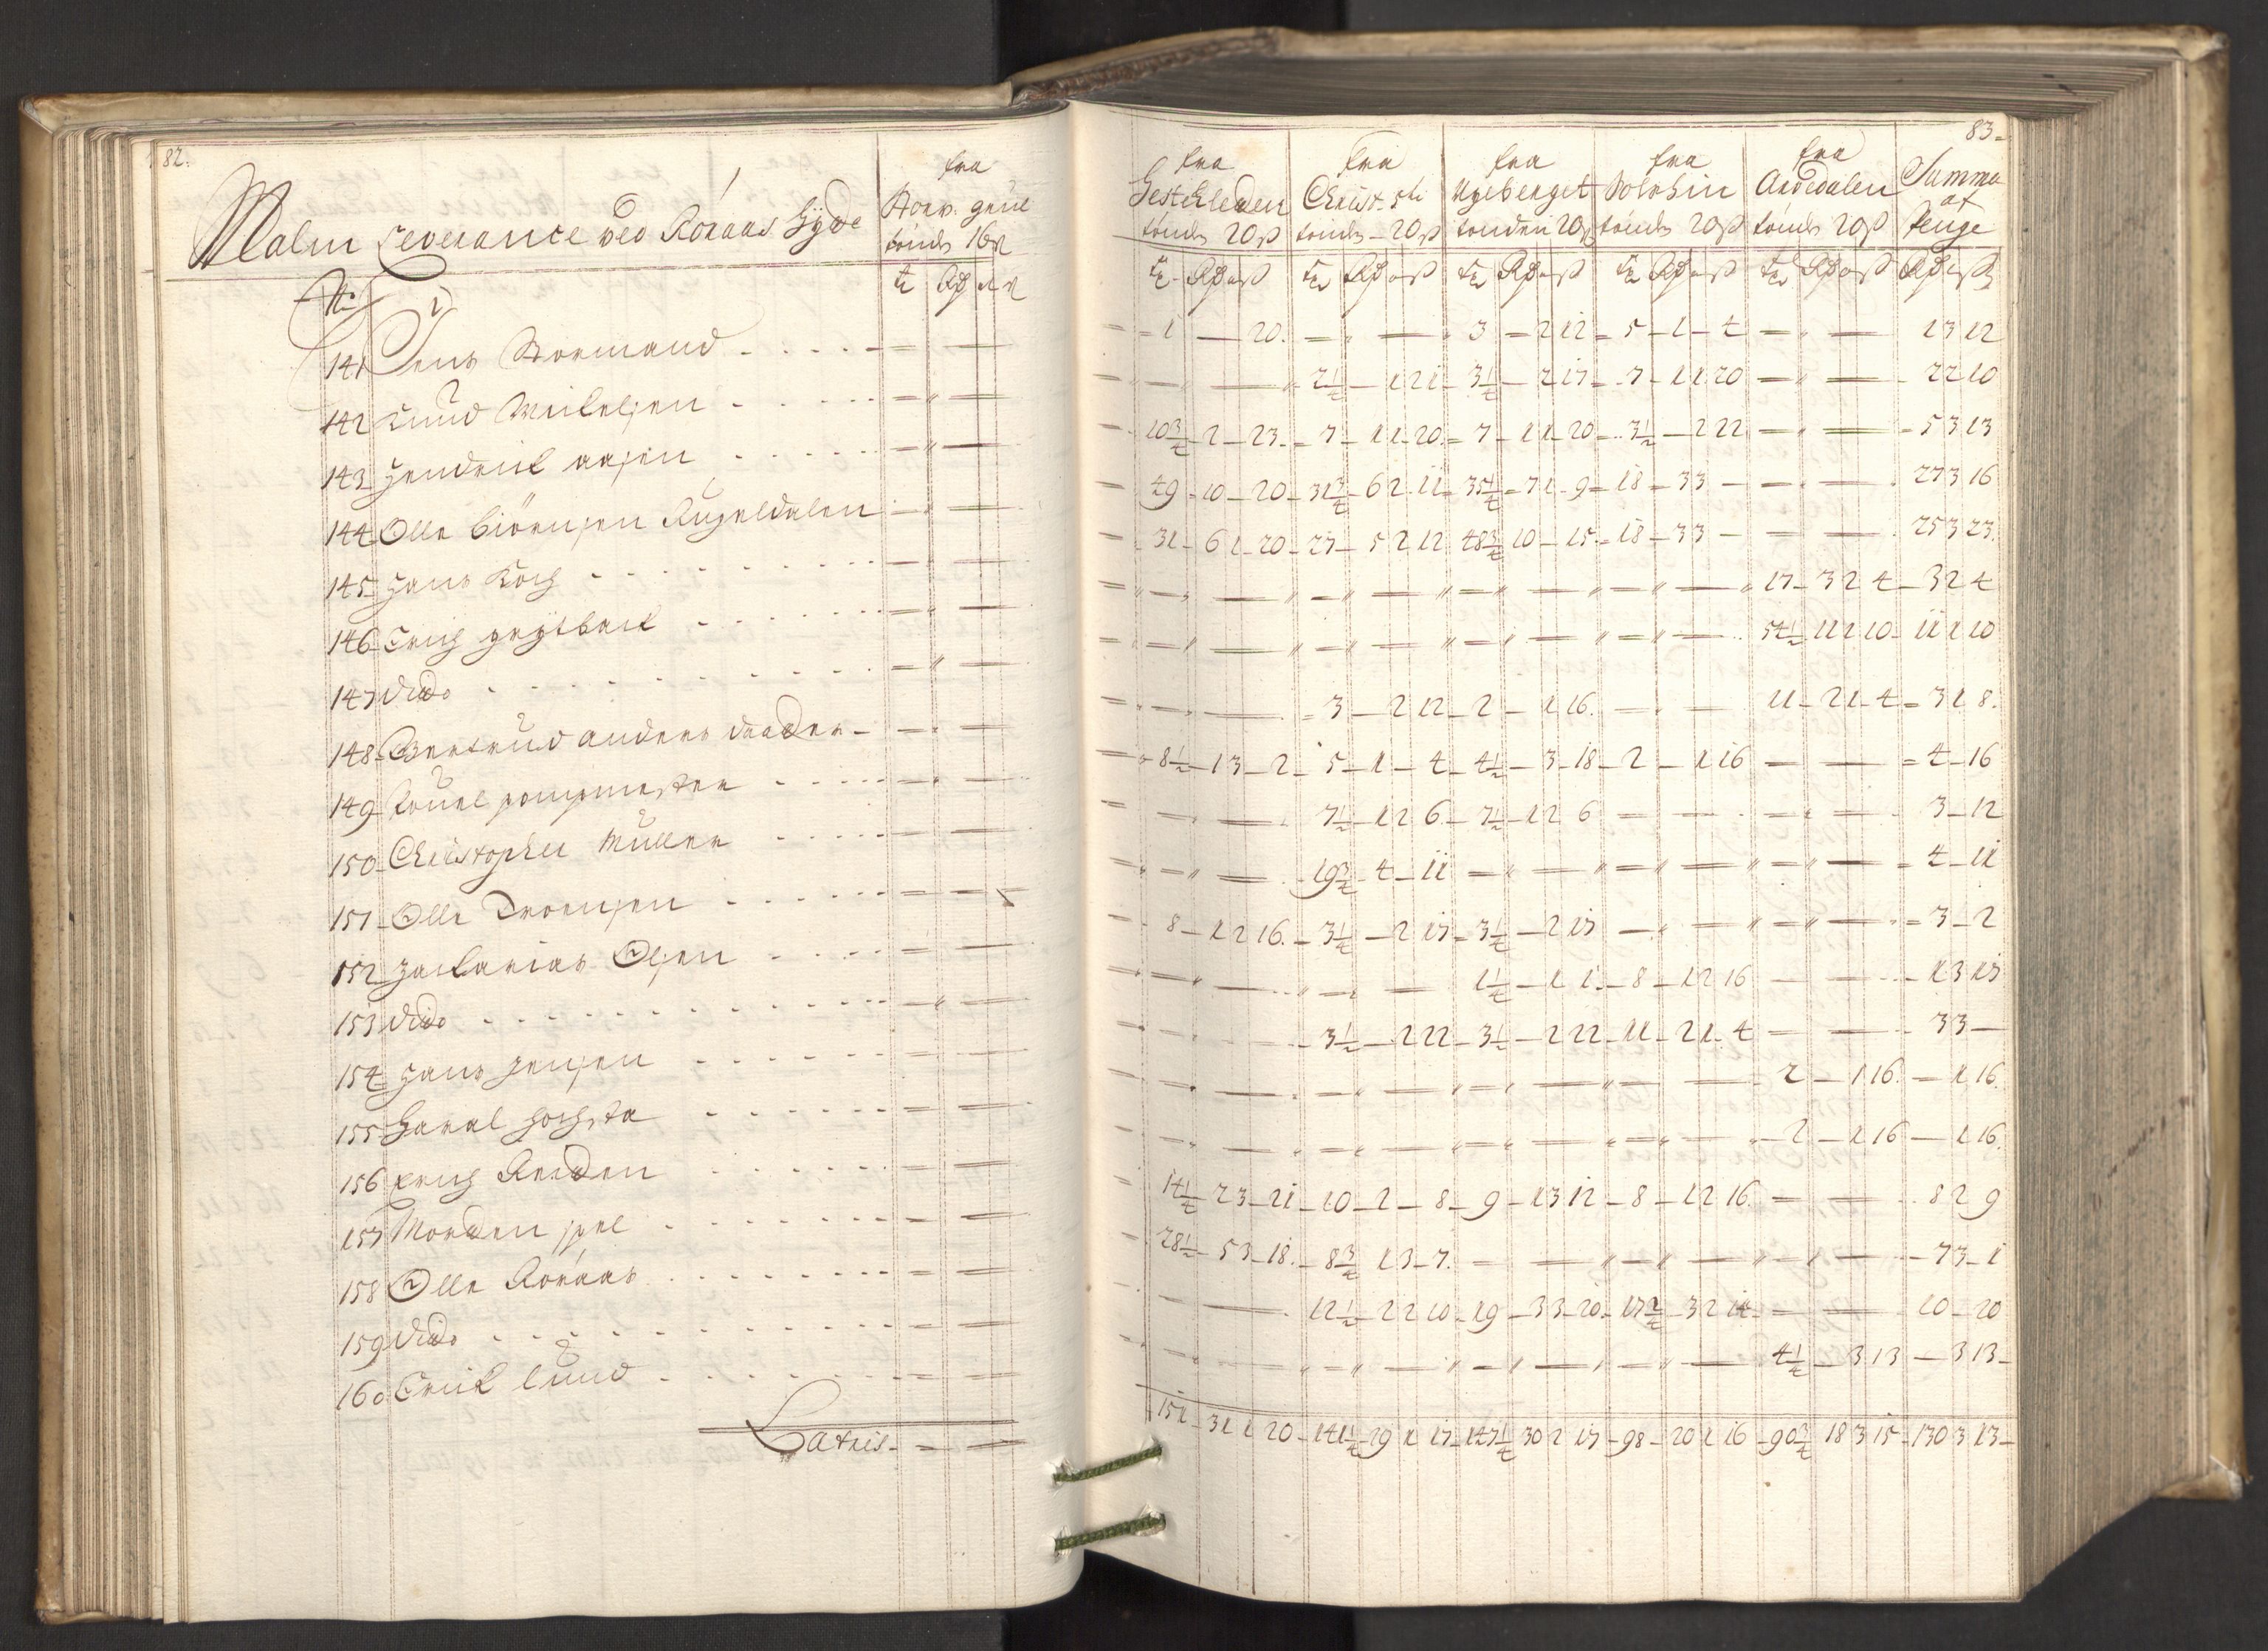 82.
Malm Leverance ved Röraas Hÿtte
fra
Storv. grue
tönde 16 ß
No
tr Rd ort ß
141 Jens Normand - - - -
142 Knud Mikelsen - - - -
143 Hendrick aasen - - - -
144 Olle Biörnsen Rugeldalen
145 Hans Koch - - - -
146 Erich
147 dito - - - -
148 Bertrud anders datter -
149 Povel pompmester - - - -
150 Christopher Müller - - - -
151 Olle Troensen - - - -
152 Zacharias Olsen - - - -
153 dito - - - -
154 Hans Jensen - - - -
155 Haral - - - -
156 Erich Reitten - - - -
157 Morten - - - -
158 Olle Röraas - - - -
159 dito - - - -
160 Erick lund - - - -
Latris
83
fra fra fra fra fra Summa
Christ. Sti Hgeberget Solskin Arvedalen af
tönde 20 ß tönde 20 ß tönden 20 ß tönde 20 ß tönde 20 ß Penge
tr Rd ort ß tr Rd ort ß tr Rd ort ß tr Rd ort ß tr Rd ort ß Rd ort ß
1 — 20 — 3 — 2 12 — 5 — 1 — 4 — 1 3 12
2 1/4 — 1 21 — 3 1/4 — 2 17 — 7 — 1 1 20 — 2 2 10
10 3/4 — 2 — 23 — 7 — 1 1 20 — 7 — 1 1 20 — 3 1/2 — 2 22 — 5 3 13
49 — 10 — 20 — 31 3/4 — 6 2 11 — 35 1/4 — 7 1 9 — 18 — 3 3 — 27 3 16
31 — 6 1 20 — 27 — 5 2 12 — 48 3/4 10 — 15 — 18 — 3 3 — 25 3 23
17 — 3 2 4 — 3 2 4
54 1/2 11 1 10 — 11 1 10
3 — 2 12 — 2 — 1 16 — 11 — 2 1 4 — 3 1 8
8 1/2 — 1 3 2 — 5 — 1 — 4 — 4 1/2 — 3 18 — 2 — 1 16 — 4 — 16
7 1/2 — 1 2 6 — 7 1/2 — 1 2 6 — 3 — 12
19 3/4 — 4 — 11 — 4 — 11
8 — 1 2 16 — 3 1/4 — 2 17 — 3 1/4 — 2 17 — 3 — 2
1 1/4 — 1 1 — 8 — 1 2 16 — 1 3 17
3 1/2 — 2 22 — 3 1/2 — 2 22 — 11 — 2 1 4 — 3 3 —
2 — 1 16 — 1 16
2 — 1 16 — 1 16
14 1/4 — 2 3 21 — 10 — 2 — 8 — 9 — 1 3 12 — 8 — 1 2 16 — 8 2 9
28 1/2 — 5 3 18 — 8 3/4 1 3 7 — 7 3 1
12 1/2 — 2 2 10 — 19 — 3 3 20 — 17 3/4 — 3 2 14 — 10 — 20
4 1/4 — 3 13 — 3 13
151 — 31 1 20 — 141 1/4 — 29 1 17 — 147 1/4 30 2 17 — 98 — 20 1 16 — 90 3/4 18 3 15 — 130 3 13